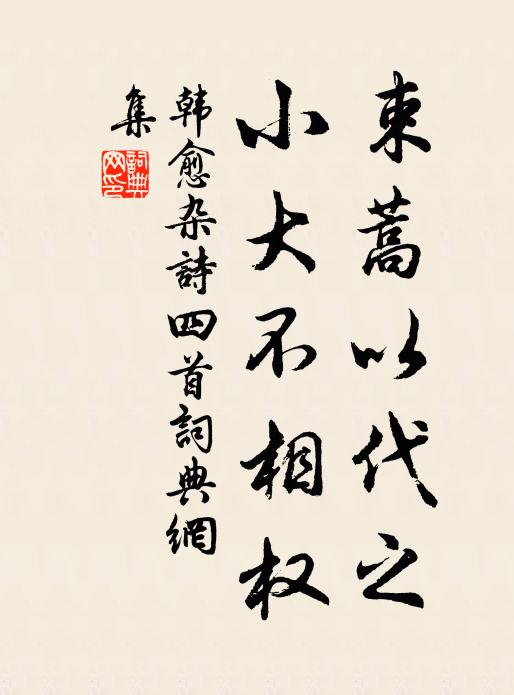 束蒿以代之
小大不相权
韩愈杂詩四首詞典網
集
詞典
网印